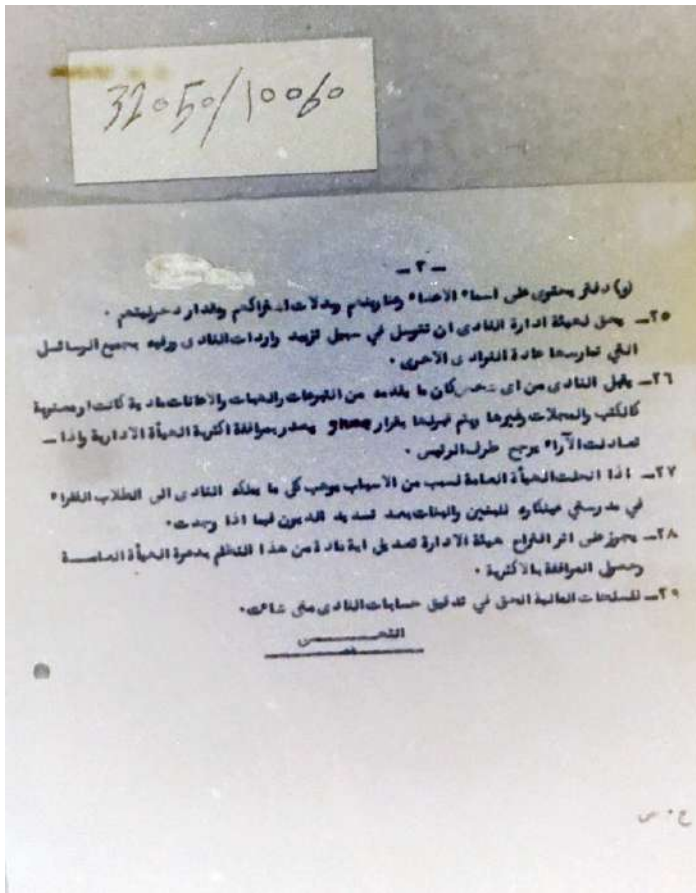 32050/10060
- ٣ -
(و) دفتر يحتوى على اسماء الاعضاء وعناوينهم وبدلات اشتراكهم ومقدار مدفوعاتهم .
٢٥ـ يحق لهيئة ادارة النادى ان تتوسل في سبيل تزييد واردات النادى ورقيه بجميع الوسائل
التي تمارسها عادة النوادى الاخرى .
٢٦ـ يقبل النادى من اى شخص كان ما يقدمه من التبرعات والهبات والاعانات مادية كانت او معنوية
كالكتب والمجلات وغيرها ويتم قبولها بقرار يصدر بموافقة اكثرية الهيأة الادارية واذا ـ
تعادلت الآراء يرجح طرف الرئيس .
٢٧ـ اذا انحلت الهيأة العامة لسبب من الاسباب يوهب كل ما يملكه النادى الى الطلاب الفقراء
في مدرستي عينكاوه للبنين والبنات بعد تسديد الديون فيما اذا وجدت .
٢٨ـ يجوز على اثر اقتراح هيئة الادارة تعديل اية مادة من هذا النظام بدعوة الهيأة العامـــة
وحصول الموافقة بالاكثرية .
٢٩ـ للسلطات المالية الحق في تدقيق حسابات النادى متى شاءت .
ح . س